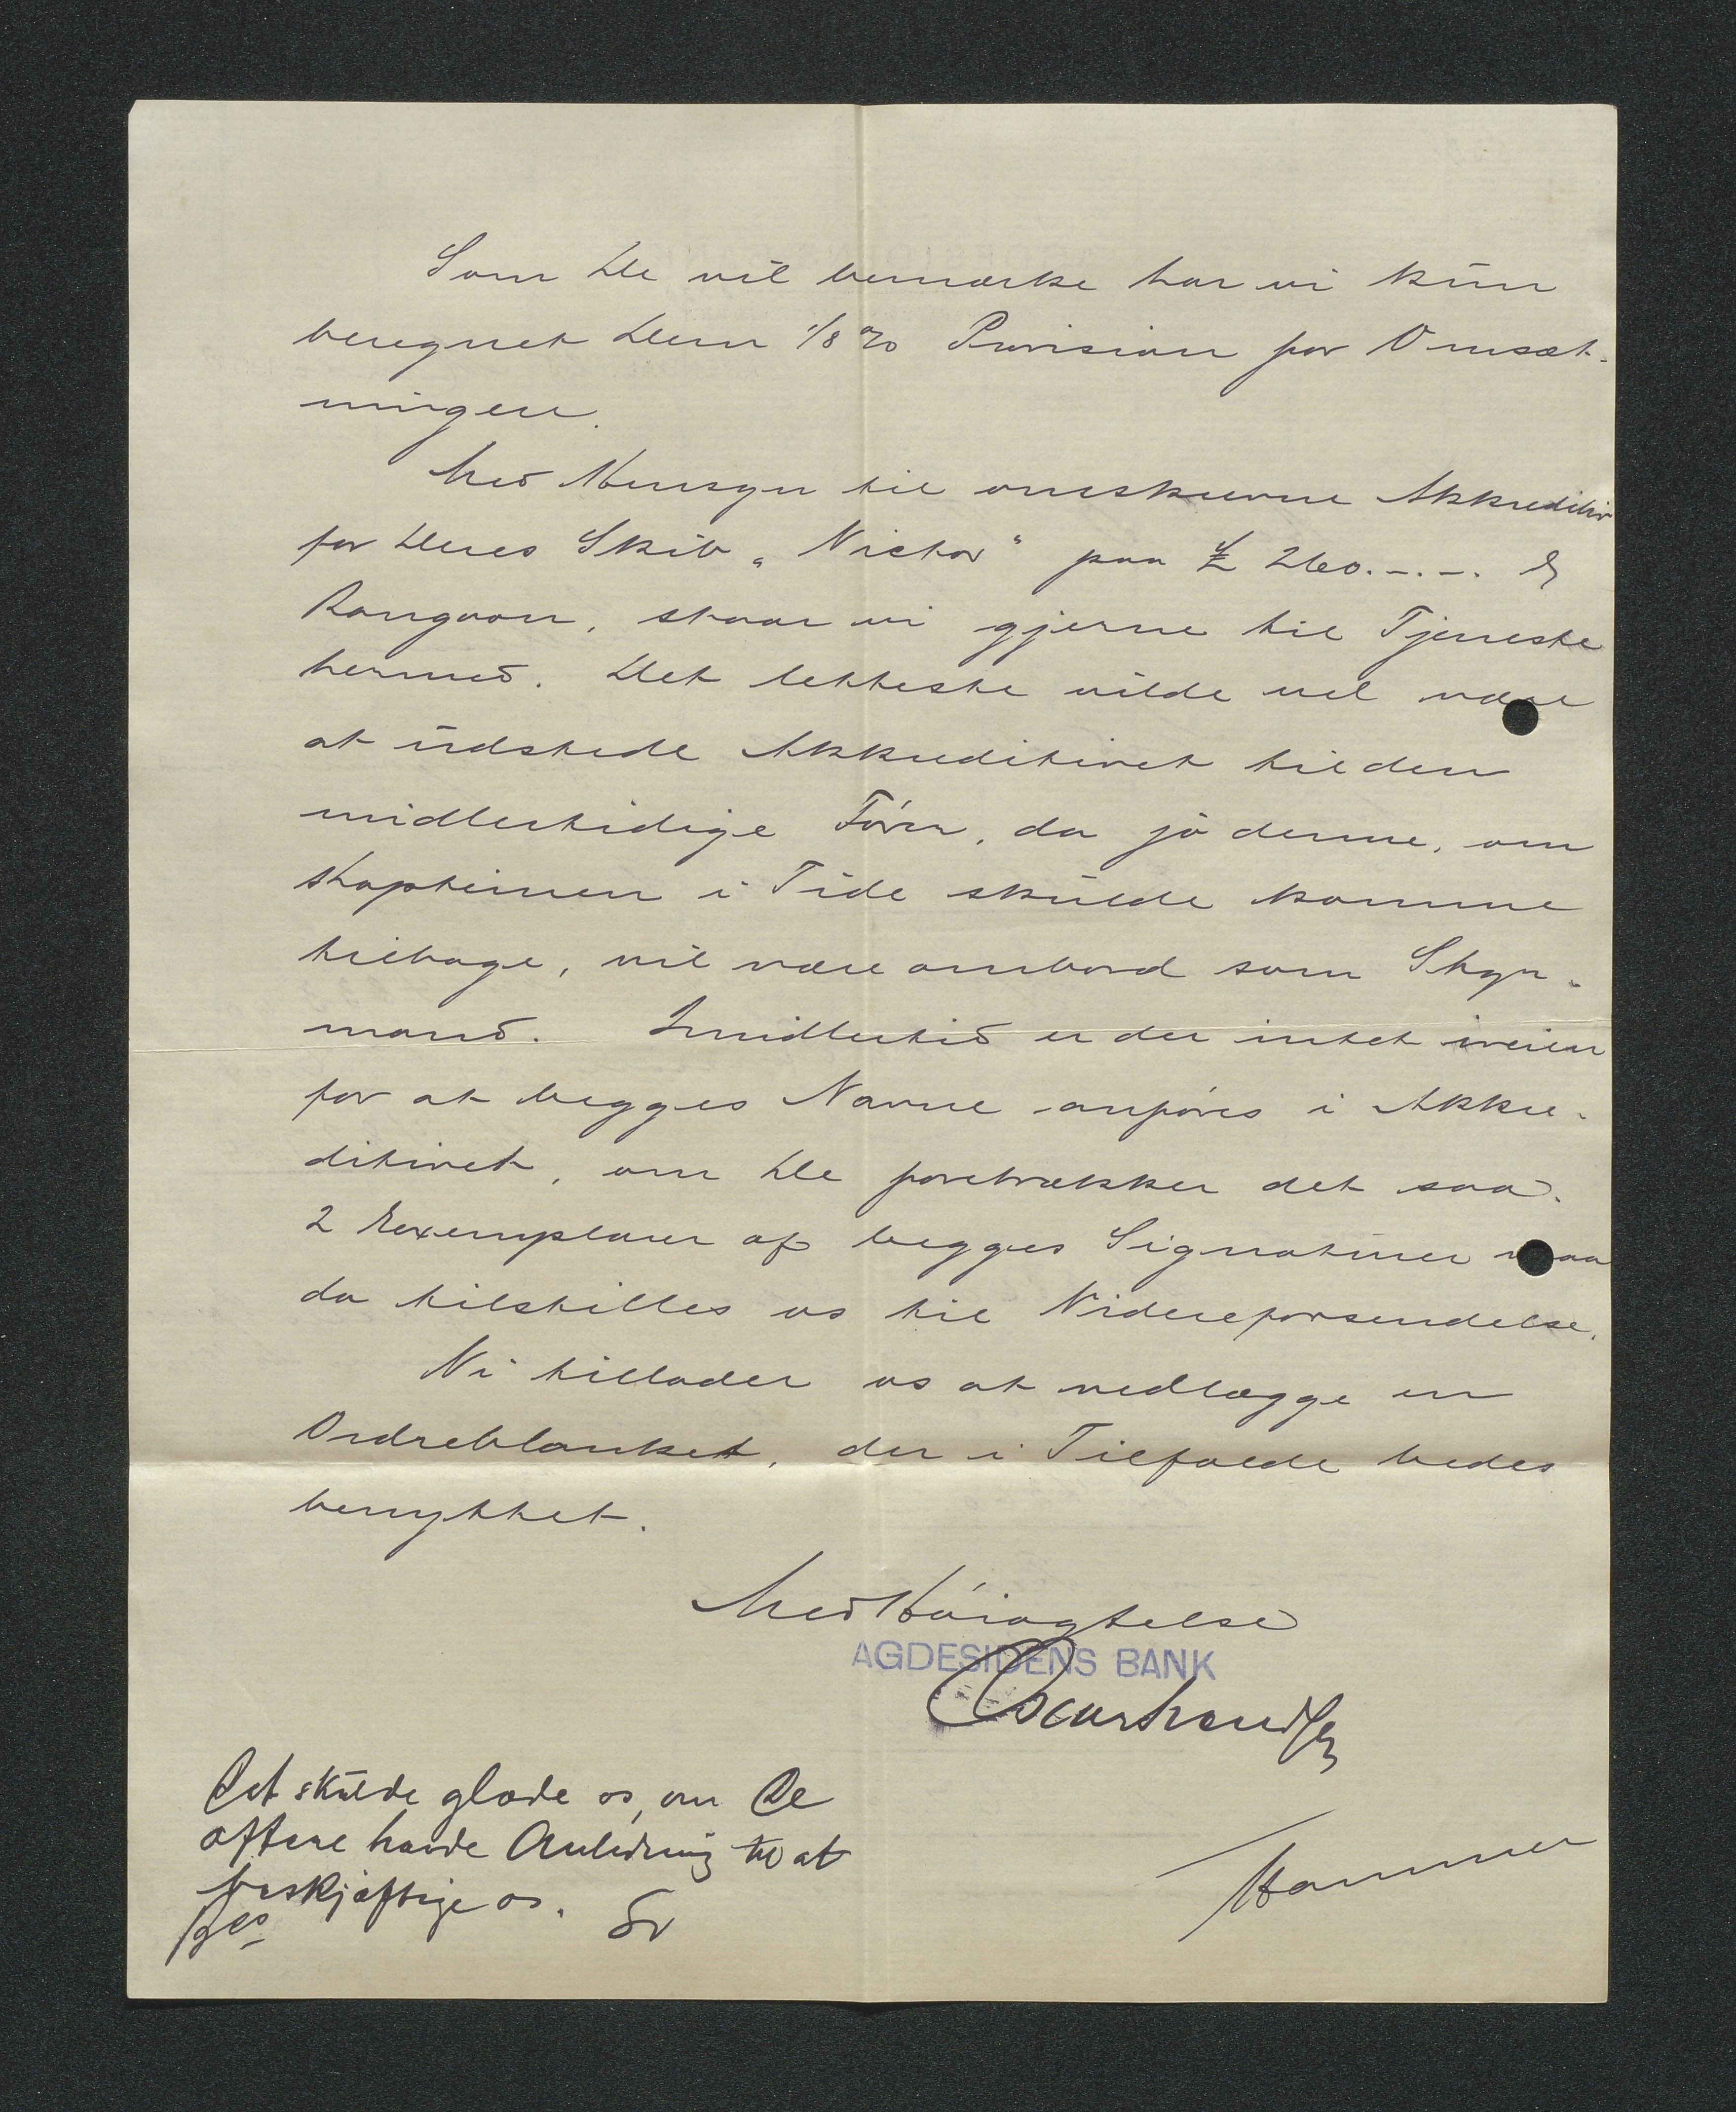 Som De vil bemærke har vi kun
beregnet Dem 1/8 % Provision for Omsæt-
ningen.
Med Hensyn til omskrevne Akkreditiv
for Deres Skib "Victor" paa £ 260.-.-. &
Rangoon, staar vi gjerne til Tjeneste
hermed. Det letteste vilde vel være
at udstede Akkreditivet til den
midlertidige Fører, da jo denne, om
Kapteinen i Tide skulde komme
tilbage, vil være ombord som Styr-
mand. Imidlertid er der intet iveien
for at begges Navne anføres i Akkre-
ditivet, om De foretrækker det saa.
2 Exemplarer af begges Signaturer maa
da tilstilles os til Videreforsendelse.
Vi tillader os at vedlægge en
Ordreblanket, der i Tilfælde bedes
benyttet.
Med Høiagtelse
AGDESIDENS BANK
Hammer
Det skulde glæde os, om De
oftere havde Anledning til at
beskjæftige os.